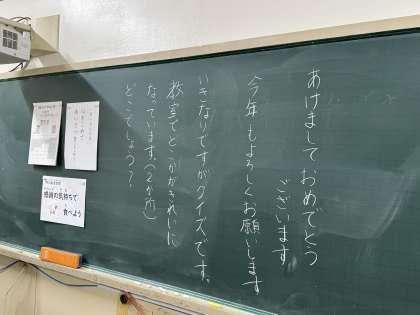 あけましておめでとう
ございます
今年もよろしくお願いします
いきなりですがクイズです。
教室でどこかがきれいに
なっています。(2か所)
どこでしょう?
感謝の気持ちで
食べよう